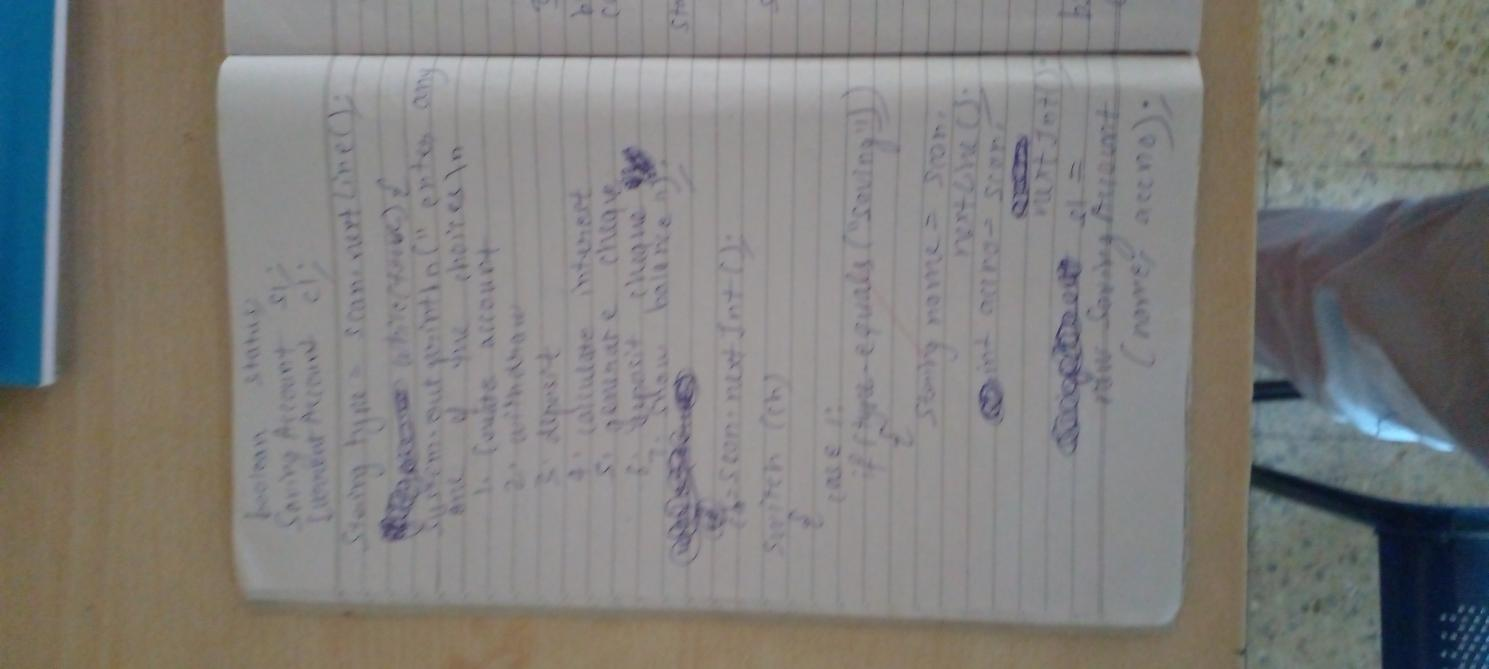 boolean status
Saving Account s1;
Current Account c1;
String type = scan.nextLine();
while (status) {
System.out.println(" enter any
one of the choices \n
1. Create account
2. withdraw
3. deposit
4. calculate interest
5. generate cheque
6. deposit cheque
7. show balance ");
ch = scan.nextInt();
switch (ch)
{
case 1:
if (type.equals("saving"))
{
String name = scan.
nextLine();
int accno = scan.
nextInt();
s1 =
new Saving Account
(name, accno);